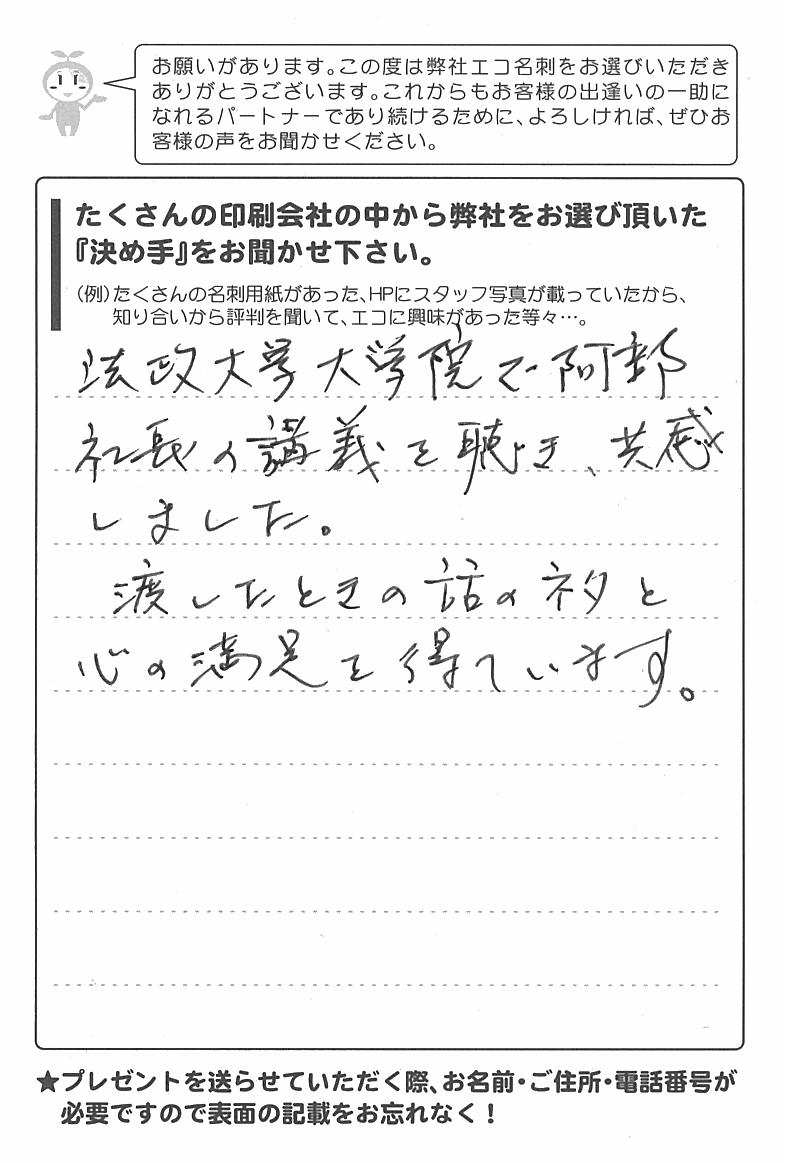 お願いがあります。この度は弊社エコ名刺をお選びいただき
ありがとうございます。これからもお客様の出逢いの一助に
なれるパートナーであり続けるために、よろしければ、ぜひお
客様の声をお聞かせください。
たくさんの印刷会社の中から弊社をお選び頂いた
『決め手』をお聞かせ下さい。
(例)たくさんの名刺用紙があった、HPにスタッフ写真が載っていたから、
知り合いから評判を聞いて、エコに興味があった等々…。
法政大学大学院で阿部
社長の講義を聴き、共感
しました。
渡したときの話のネタと
心の満足を得ています。
★プレゼントを送らせていただく際、お名前・ご住所・電話番号が
必要ですので表面の記載をお忘れなく！